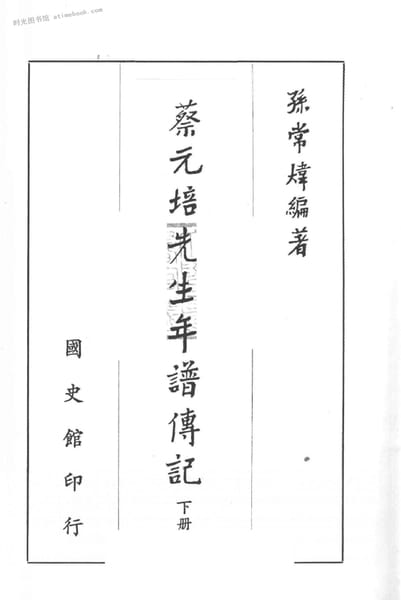 时光图书馆 atimebook.com
孫常煒編著
蔡元培先生年譜傳記
下册
國史館印行